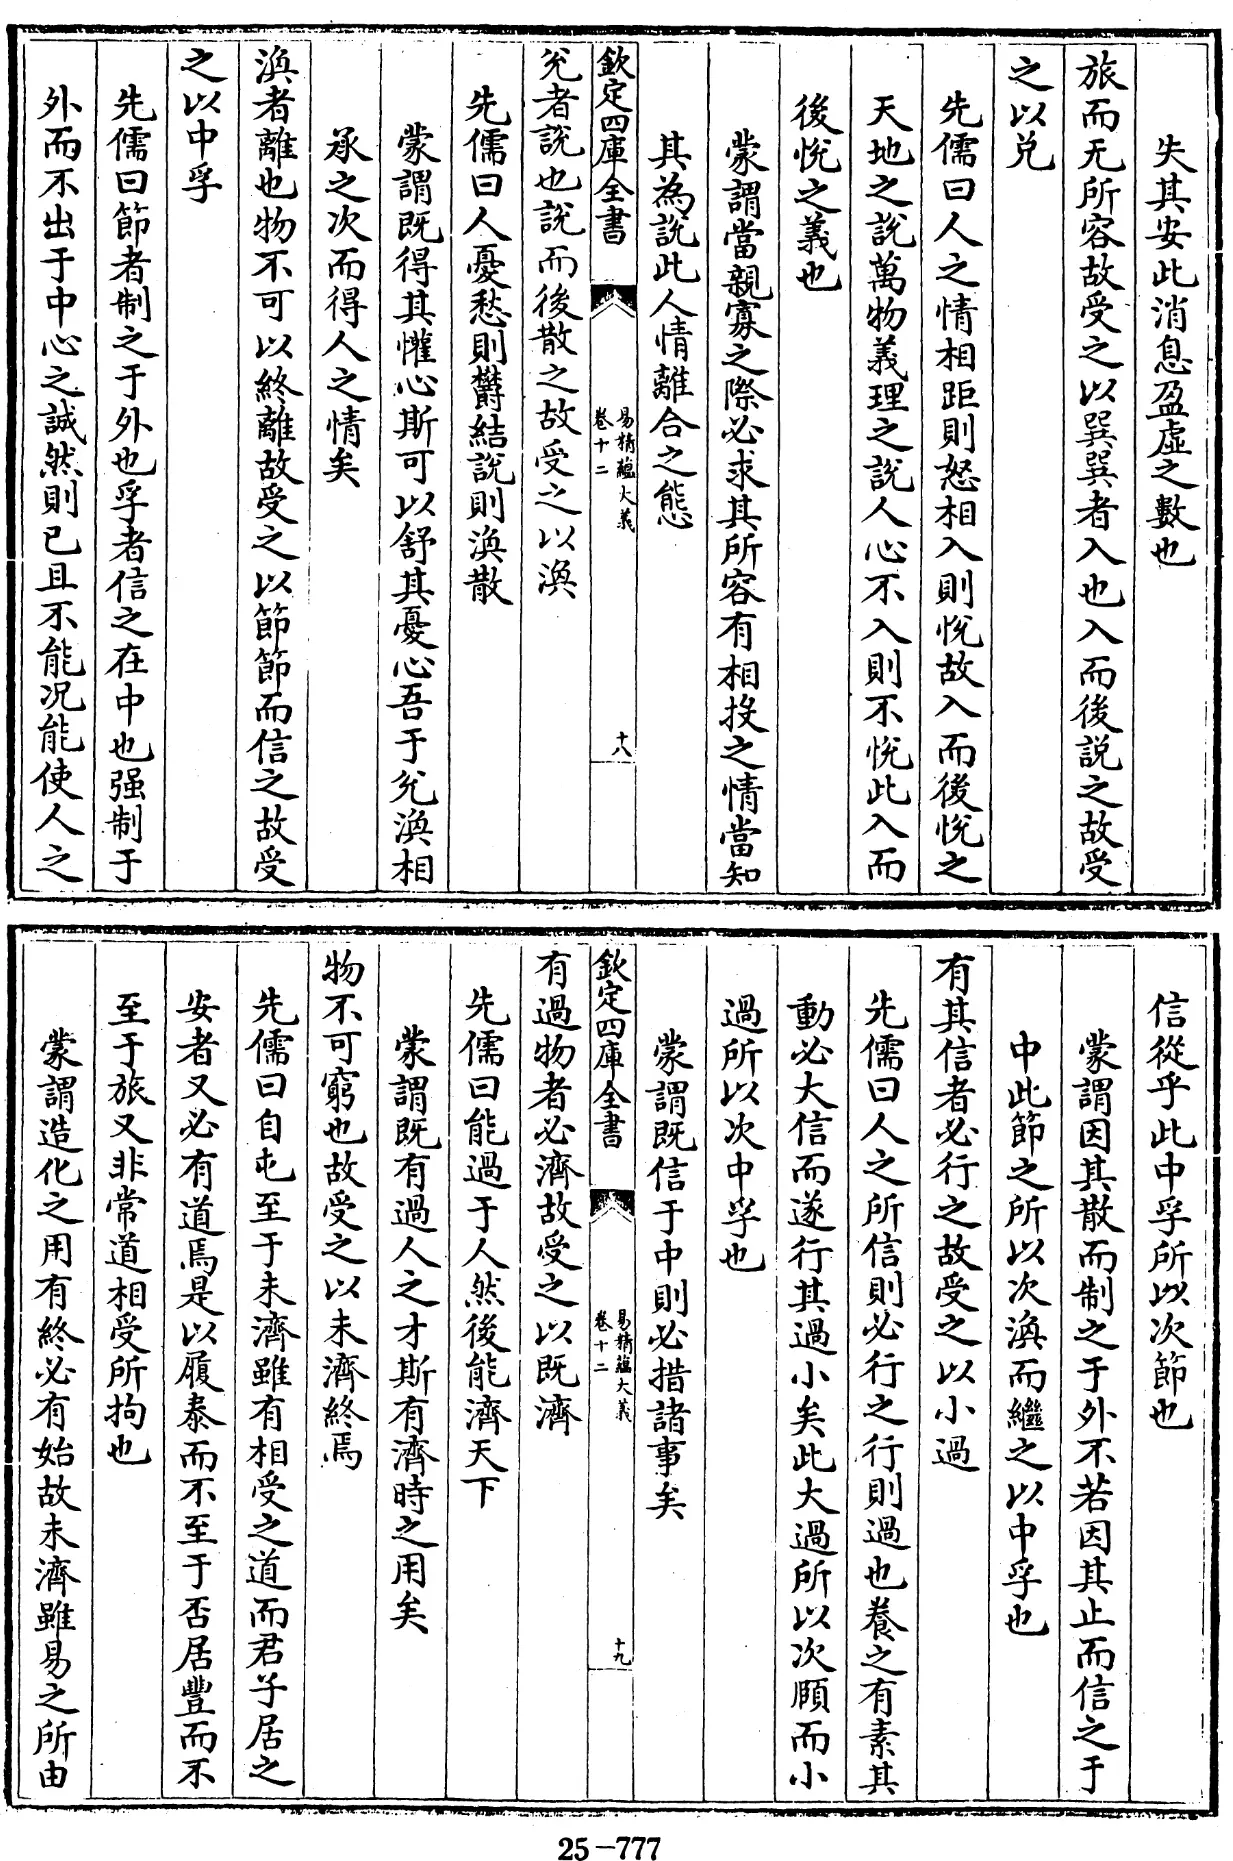 失其安此消息盈虛之數也
旅而无所容故受之以巽巽者入也入而後説之故受
之以兑
先儒曰人之情相距則怒相入則悅故入而後悅之
天地之說萬物義理之說人心不入則不悅此入而
後悅之義也
蒙謂當親寡之際必求其所容有相投之情當知
其為說此人情離合之態
欽定四庫全書
易精蘊大義
卷十二
十八
兊者說也說而後散之故受之以渙
先儒曰人憂愁則欝結說則渙散
蒙謂既得其懽心斯可以舒其憂心吾于兊渙相
承之次而得人之情矣
渙者離也物不可以終離故受之以節節而信之故受
之以中孚
先儒曰節者制之于外也孚者信之在中也强制于
外而不出于中心之誠然則已且不能况能使人之
信從乎此中孚所以次節也
蒙謂因其散而制之于外不若因其止而信之于
中此節之所以次渙而繼之以中孚也
有其信者必行之故受之以小過
先儒曰人之所信則必行之行則過也養之有素其
動必大信而遂行其過小矣此大過所以次頤而小
過所以次中孚也
蒙謂既信于中則必措諸事矣
欽定四庫全書
易精蘊大義
卷十二
十九
有過物者必濟故受之以既濟
先儒曰能過于人然後能濟天下
蒙謂既有過人之才斯有濟時之用矣
物不可窮也故受之以未濟終焉
先儒曰自屯至于未濟雖有相受之道而君子居之
安者又必有道焉是以履泰而不至于否居豐而不
至于旅又非常道相受所拘也
蒙謂造化之用有終必有始故未濟雖易之所由
25-777